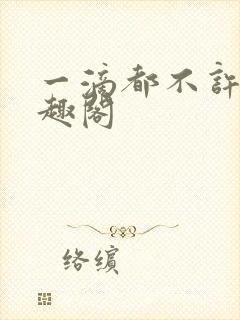 一滴都不许
趣阁
络缤